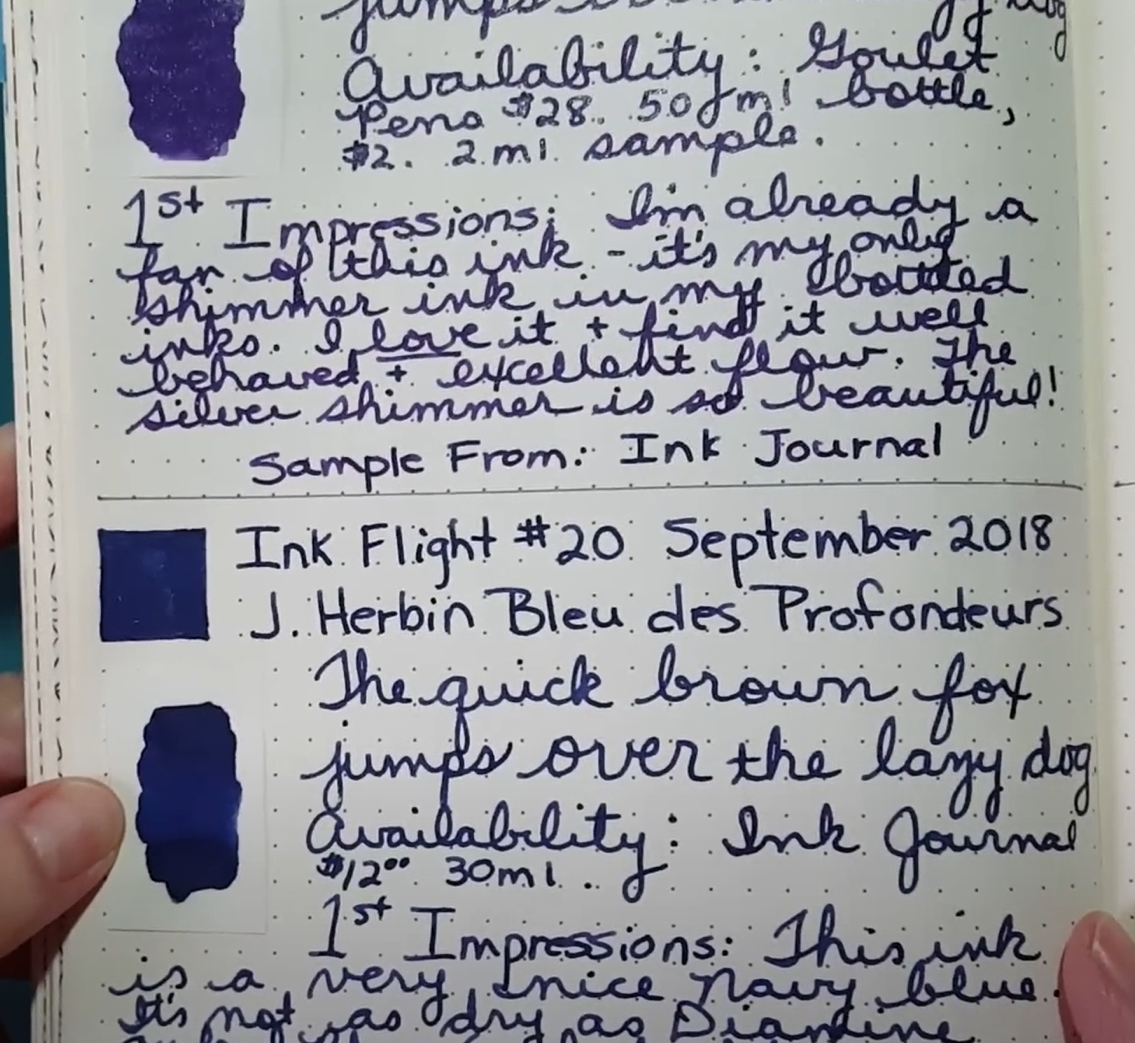 jumps
Availability: Goulet
Pens $28. 50 ml bottle,
$2. 2 ml. sample.
1st Impressions: I'm already a
fan of this ink - it's my only
shimmer ink in my bottled
inks. I love it + find it well
behaved + excellent flow. The
silver shimmer is so beautiful!
Sample From: Ink Journal
Ink Flight #20 September 2018
J. Herbin Bleu des Profondeurs
The quick brown fox
jumps over the lazy dog
Availability: Ink Journal
$12.00 30ml.
1st Impressions: This ink
is a very nice navy blue.
It's not as dry as Diamine